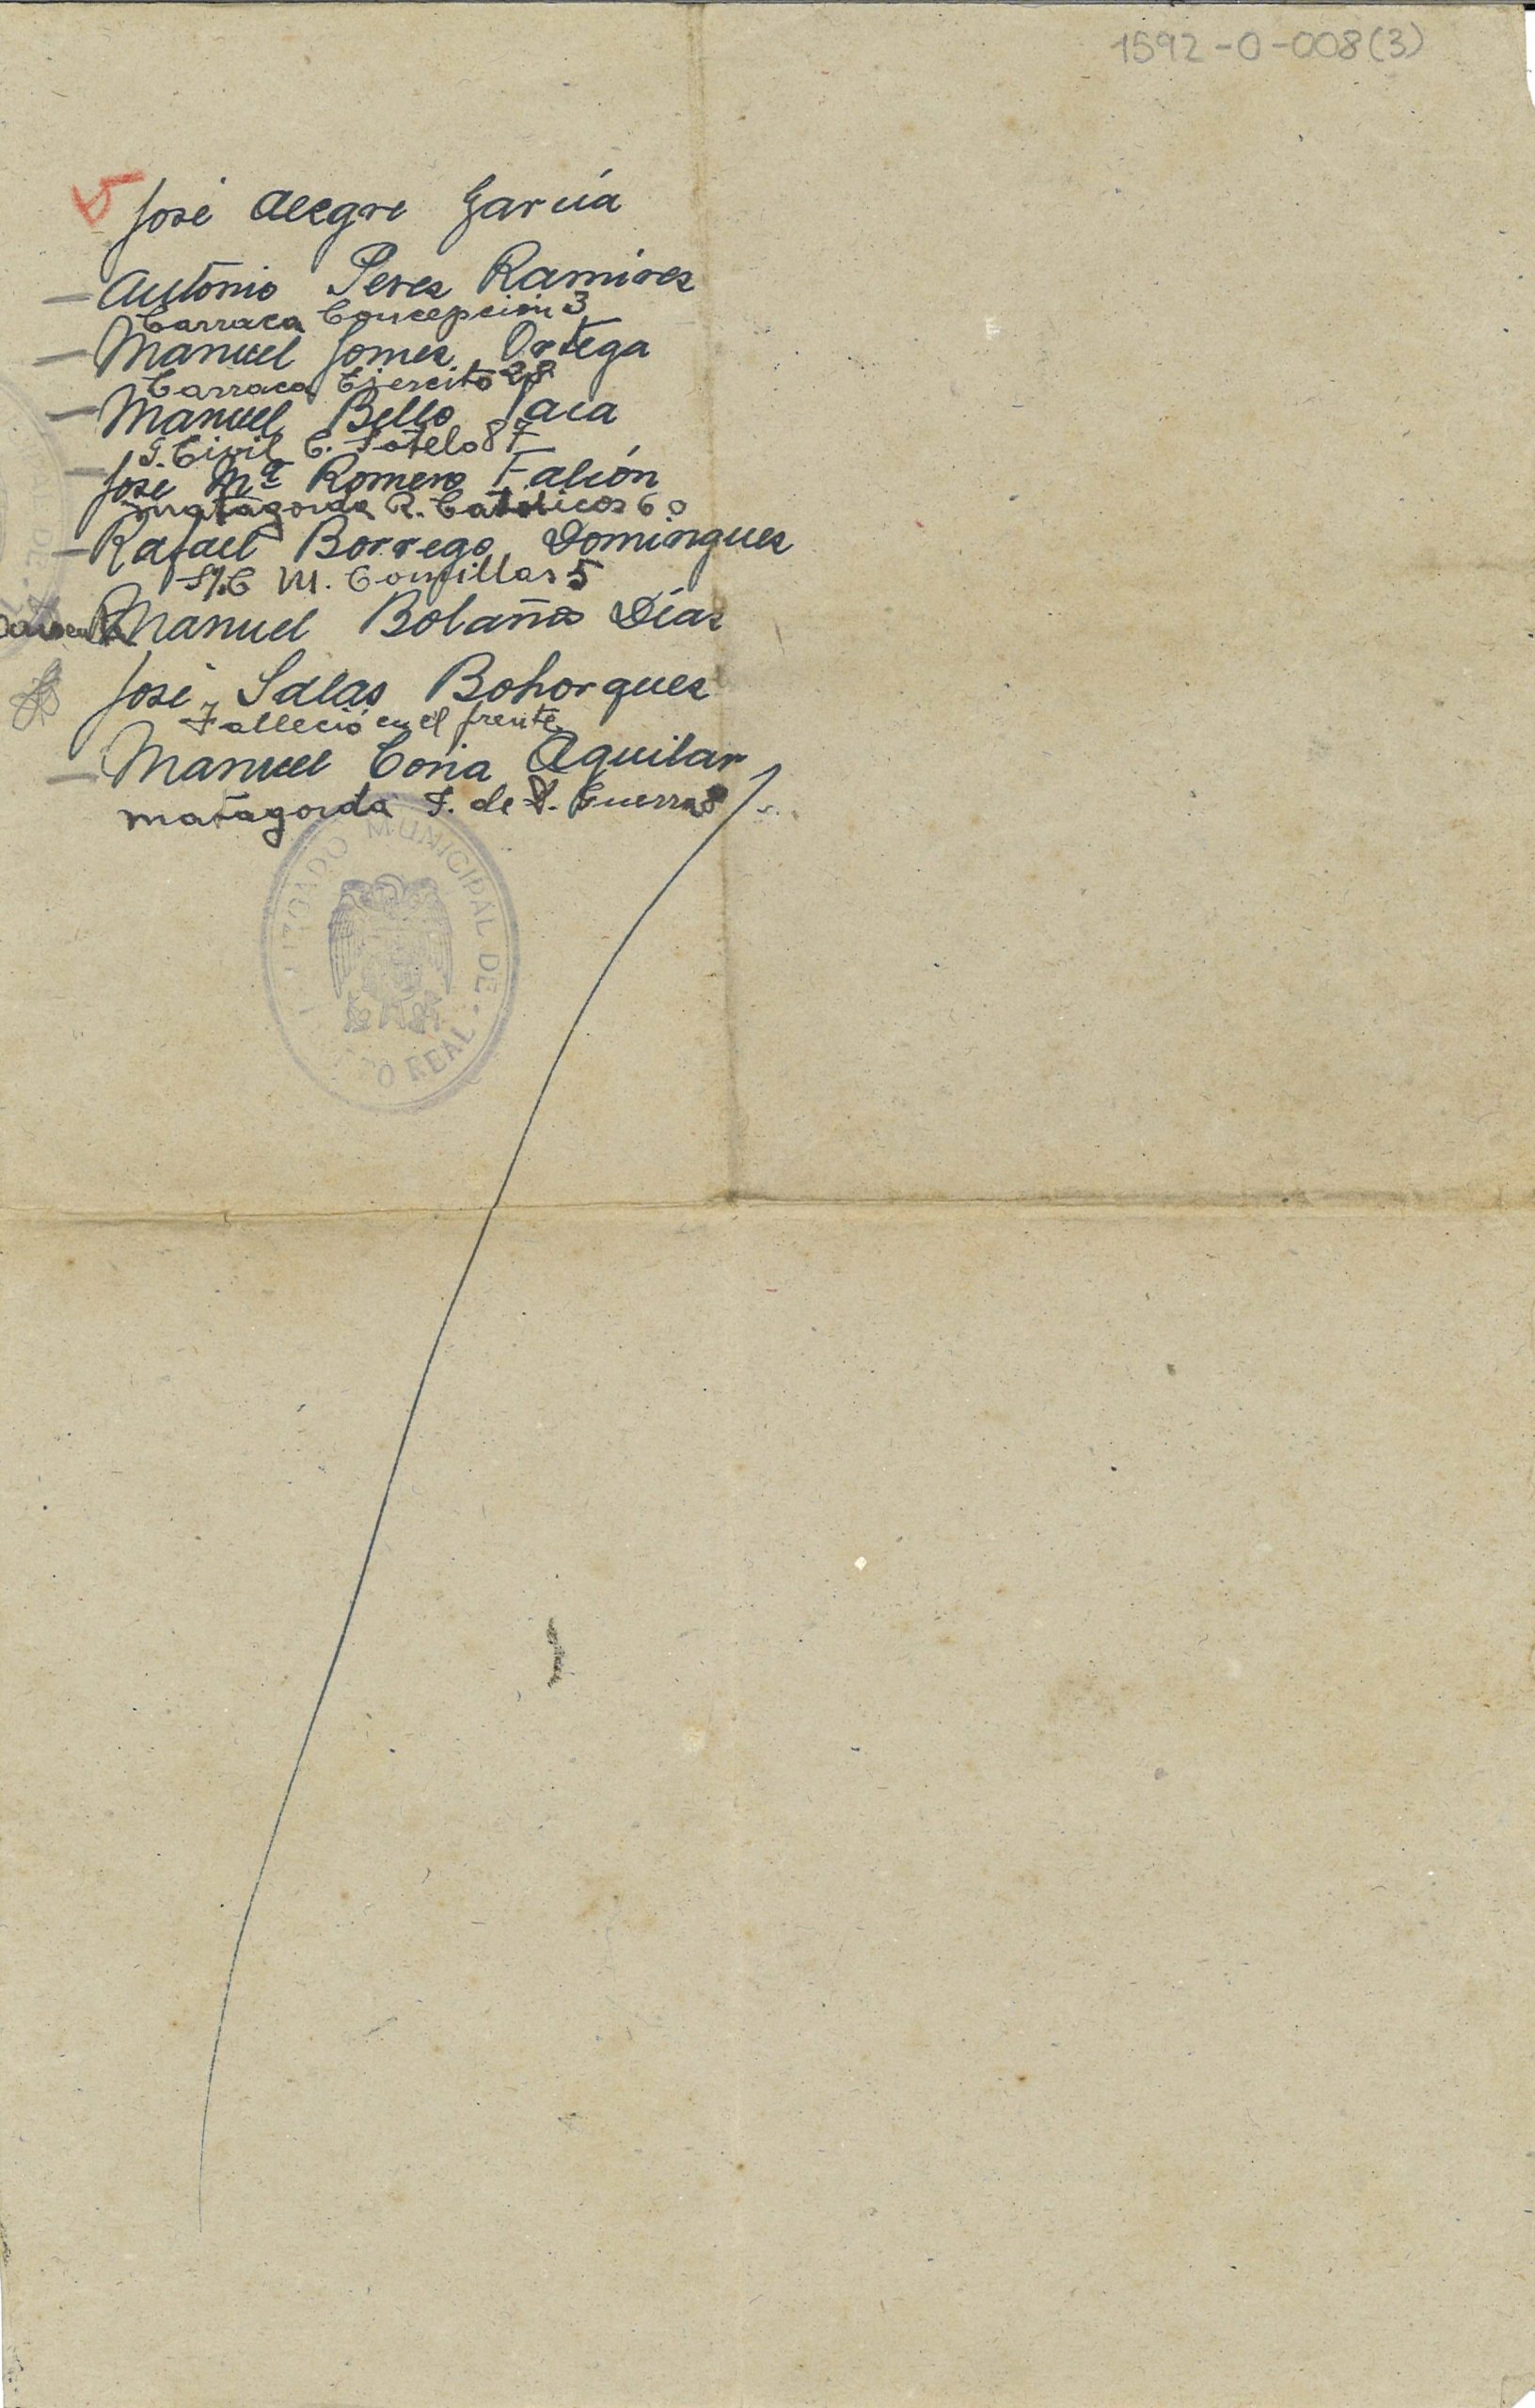 1592-0-008(3)
José Alegre García
- Antonio Peres Ramires
Carraca Concepción 3
- Manuel Gomes Ortega
Carraca Ejercito 28
- Manuel Bello Jaca
G. Civil C. Sotelo 87
- José Mª Romero Falión
matagorda R. Catolicos 60
- Rafael Borrego Domingues
S/C M. Comillas 5
Manuel Bolaño Días
José Salas Bohorques
Falleció en el frente
- Manuel Coria Aguilar
matagorda F. de Guerra 8
JUZGADO MUNICIPAL DE
REAL